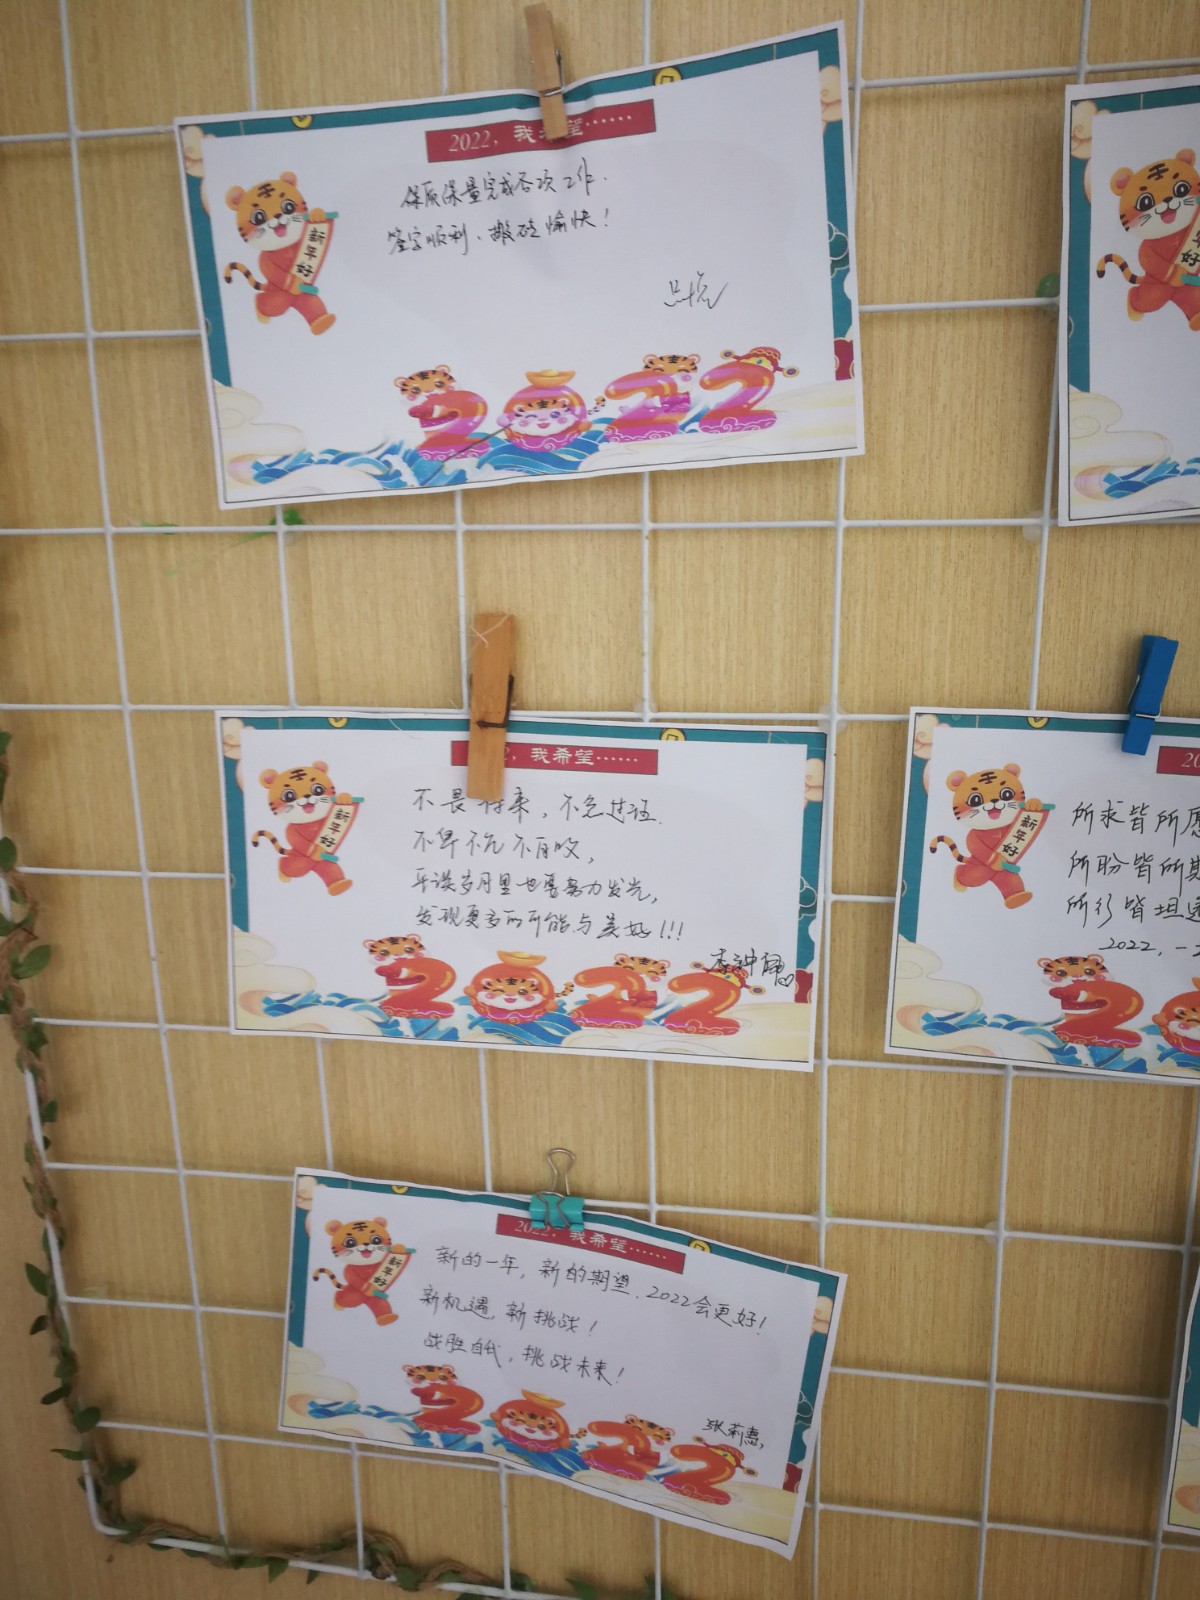 2022，我希望……
保质保量完成各项工作.
签字顺利、搬砖愉快！
新年好
2，我希望……
不畏将来，不念过往.
不卑不亢不自
平淡岁月里也要努力发光，
发现更多的可能与美好！！！
新年好
20
所求皆所愿
所盼皆所期
所行皆坦途
2022，一
新年好
2022，我希望……
新的一年，新的期望、2022会更好！
新机遇，新挑战！
战胜自我，挑战未来！
张莉惠，
新年好
2022
2022
2022